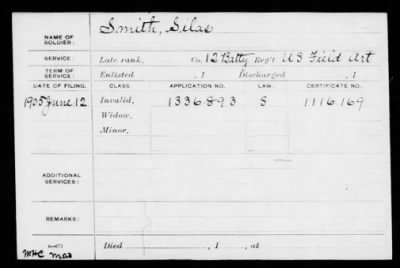 NAME OF SOLDIER: Smith, Silas
SERVICE: Late rank, Co. 12 Batty Reg't US Field Art
TERM OF SERVICE: Enlisted , 1 Discharged , 1
DATE OF FILING. CLASS. APPLICATION NO. LAW. CERTIFICATE NO.
1905 June 12 Invalid, 1336893 S 1116.169
Widow,
Minor,
ADDITIONAL SERVICES:
REMARKS:
Died , 1 , at